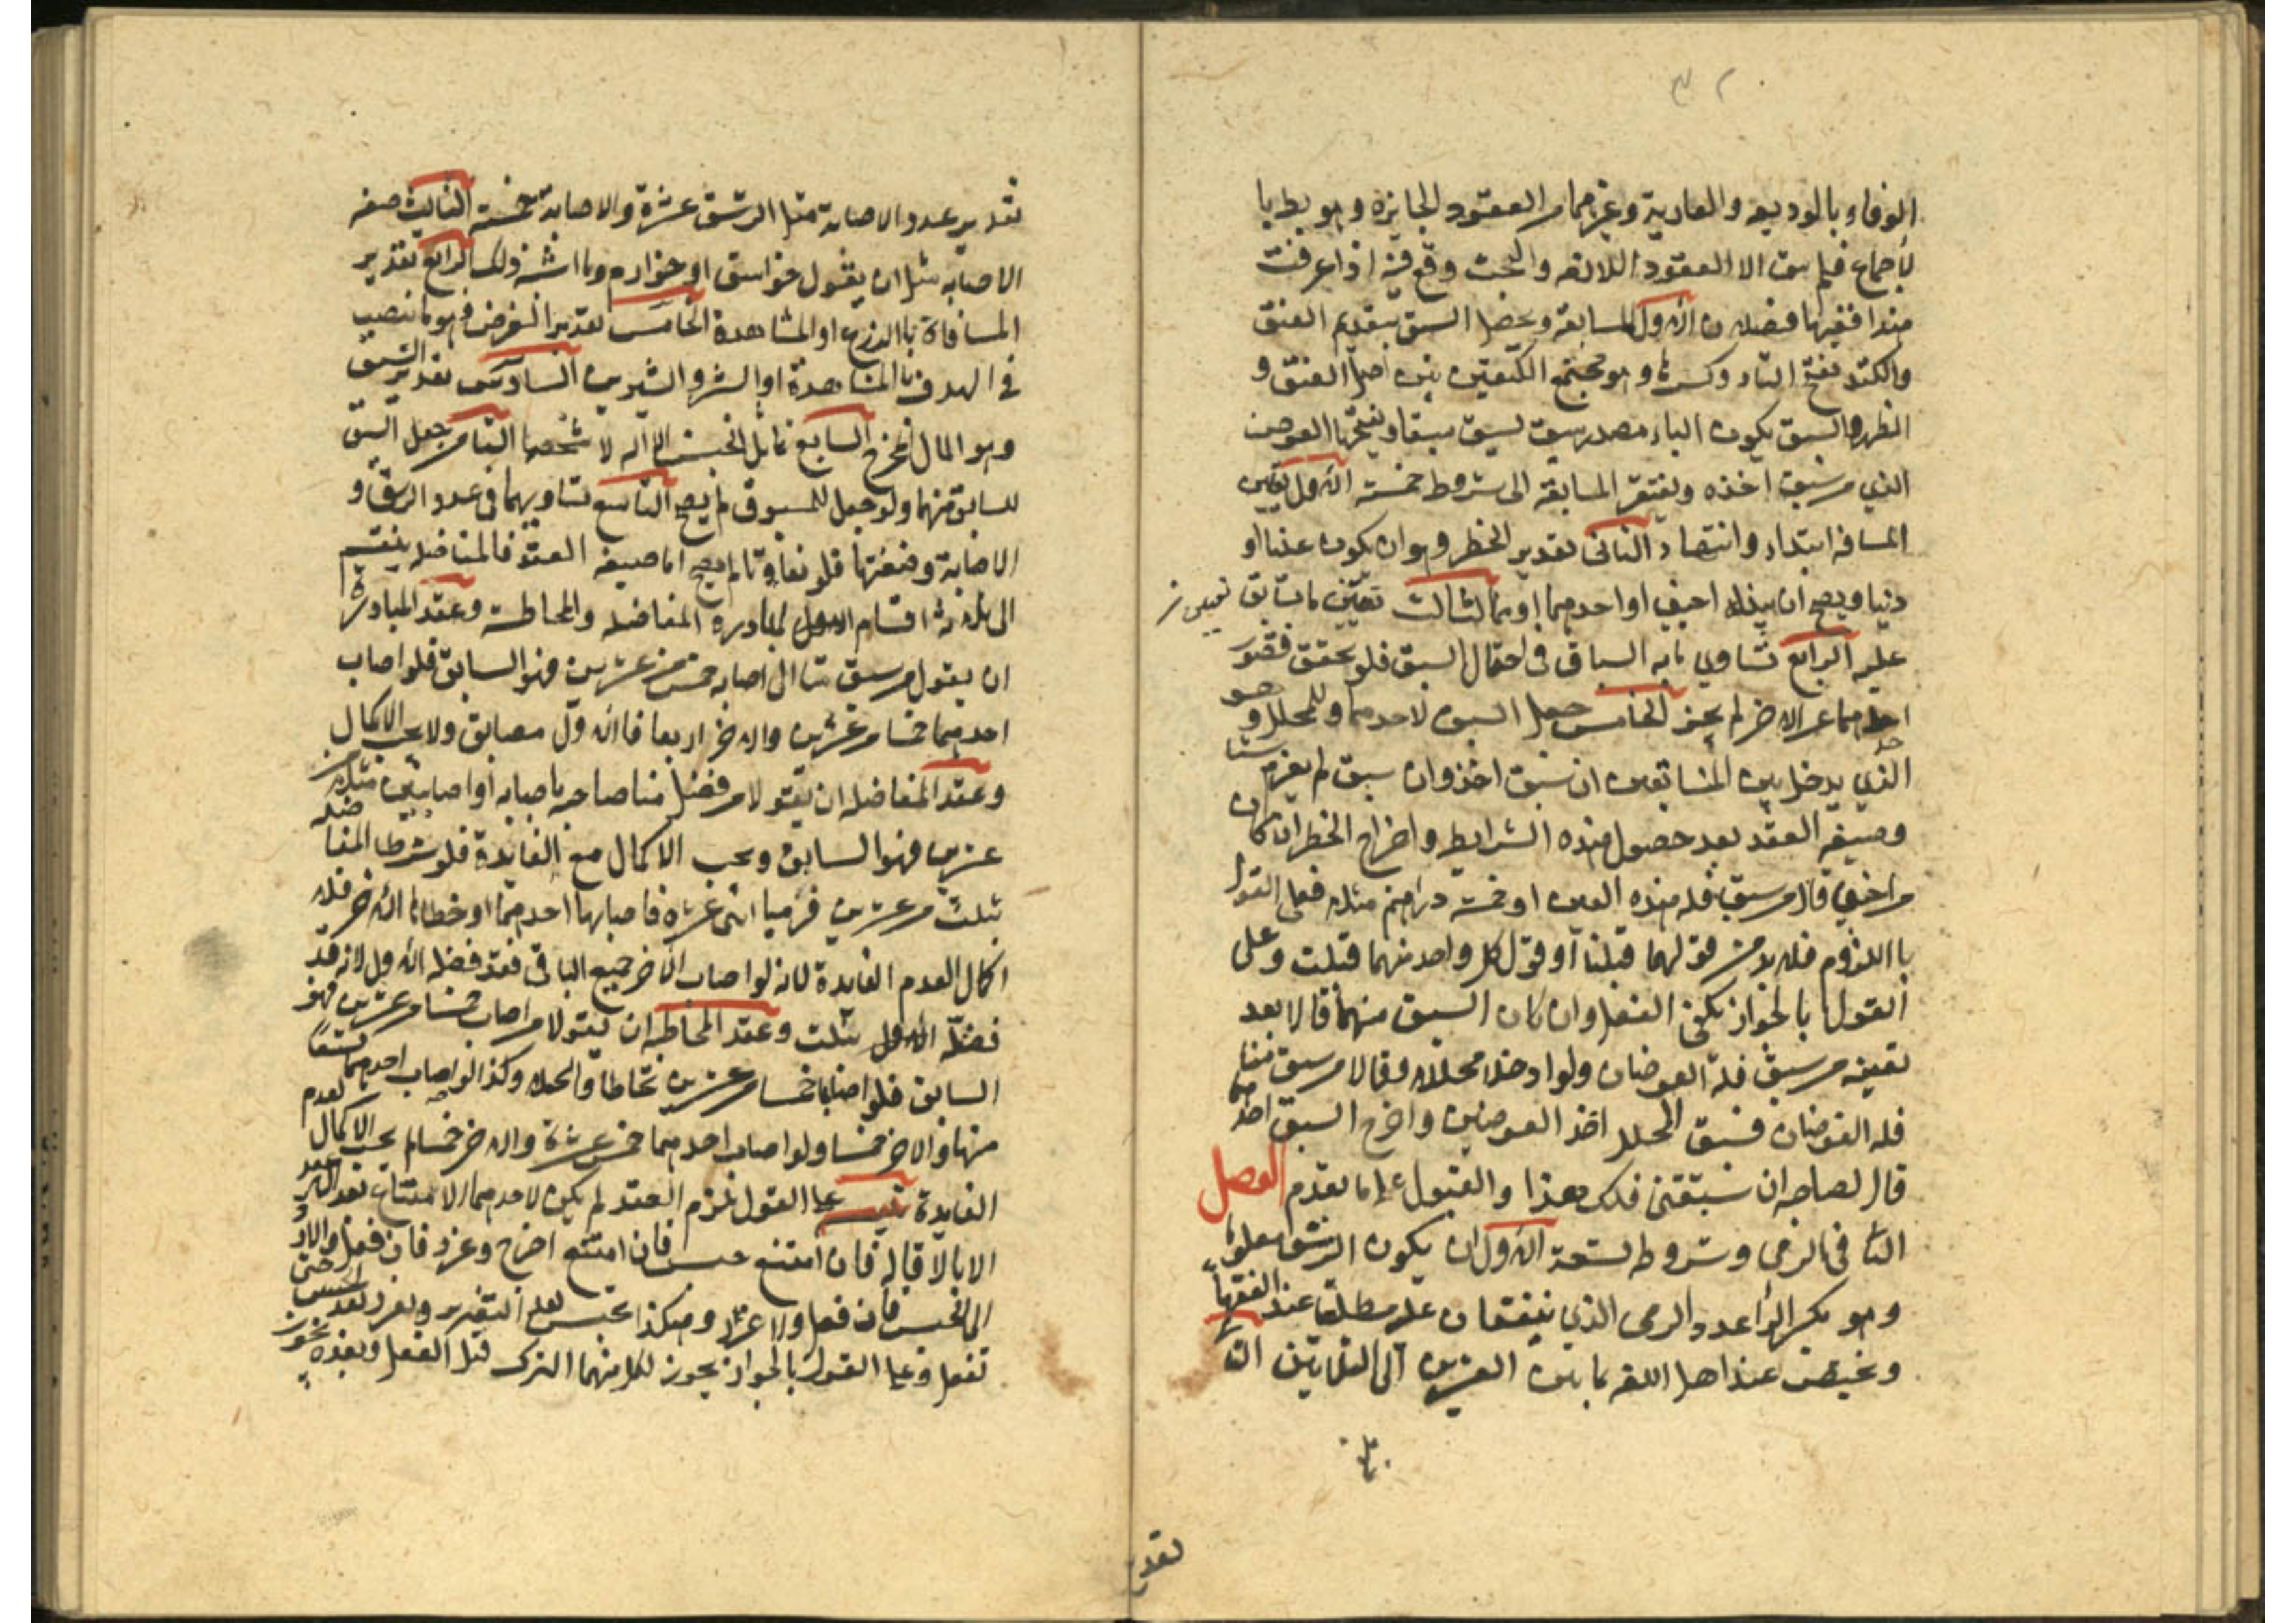 ٣٢
الوفاء بالوديعه والعارية وغيرهما من العقود الجايزة وهو بط با
لاجماع فلم يبق الا العقود اللازمه والبحث وقع فيه اذا عرفت
هذا ففيها فصلان الاول المسابقة ويحصل السبق بتقديم العنق
والكتد بفتح التاء وكسرها وهو مجتمع الكتفين بين اصل العنق و
الظهر والسبق بسكون الباء مصدر سبق يسبق سبقا وبفتحها العوض
الذي من سبق اخذه ويفتقر المسابقة الى شروط خمسة الاول تعيين
المسافه ابتداء وانتهاء الثاني تقدير الخطر وهو ان يكون عينا او
دينا ويصح ان يبذله اجنبي او احدهما او هما الثالث تعيين ما يسابق
عليه الرابع تساوي ما به السباق في احتمال السبق فلو تحقق قصور
احدهما عن الاخر لم يجز الخامس جعل السبق لاحدهما وللمحلل وهو
الذي يدخل بين المتسابقين ان سبق اخذ وان سبق لم يغرم شيئا
وصيغه العقد بعد حصول هذه الشرايط واخراج الخطر ان كان
من اجنبي قال من سبق فله هذه العين او خمسة دراهم مثلا فعلى القول
باللزوم فلا بد من قولهما قبلنا او قول كل واحد منهما قبلت وعلى
القول بالجواز يكفي الفعل وان كان السبق منهما قالا بعد
تعيينه من سبق فله العوضان ولو ادخلا محللا وقالا من سبق منا
فله العوضان فسبق المحلل اخذ العوضين واخرج السبق احدهما
قال لصاحبه ان سبقتني فلك هذا والقبول على ما تقدم الفصل
الثاني في الرمي وشروطه تسعة الاول ان يكون الرشق معلوما
وهو بكسر الراء عدد الرمي الذي يتفقان عليه مطلقا عند الفقهاء
ويختص عند اهل اللغه بما بين العشرين الى الثلاثين الثاني
تقدير
تقدير عدد الاصابة مثل الرشق عشرة والاصابة خمسة الثالث صفه
الاصابه مثل ان يقول خواسق او خوارم وما اشبه ذلك الرابع تقدير
المسافة بالذرع او المشاهدة الخامس تقدير الغرض وهو ما ينصب
في الهدف بالمشاهدة او الشبر والشبرين السادس تقدير السبق
وهو المال المخرج السابع تماثل الجنس الاله لا شخصها الثامن جعل السبق
للسابق منهما ولو جعل للمسبوق لم يصح التاسع تساويهما في عدد الرشق و
الاصابة وصفتها فلو تفاوتا لم يصح اما صيغه العقد فالمناضله ينقسم
الى ثلاثة اقسام الاول المبادره المفاضله والمحاطة وعقد المبادرة
ان يقول من سبق منا الى اصابه خمس من عشرين فهو السابق فلو اصاب
احدهما خمسا من عشرين والاخر اربعا فالاول سابق ولا يجب الاكمال
وعقد المفاضله ان يقولا من فضل منا صاحبه باصابه او اصابتين مثلا من
عشرين فهو السابق ويجب الاكمال مع الفايدة فلو شرطا المفاضله
بثلث من عشرين فرميا اثنى عشرة فاصابها احدهما واخطاها الاخر فلا
اكمال لعدم الفايدة لانه لو اصاب الاخر جميع الباقي فقد فضله الاول لانه قد
فضله الاول بثلث وعقد المحاطه ان يقولا من اصاب خمسا من عشرين فهو
السابق فلو اصابا خمسا من عشرين تحاطا واكملا وكذا لو اصاب احدهما تسعا
منها والاخر خمسا ولو اصاب احدهما خمس عشرة والاخر خمسا لم يجب الاكمال لعدم
الفايدة تنبيه على القول بلزوم العقد لم يكن لاحدهما الامتناع بعد العقد
الا بالاقاله فان امتنع حبس فان امتنع اخرج وعزر فان فعل والا رد
الى الحبس فان فعل والا عزر وهكذا يحبس بعد التعزير ويعزر بعد الحبس حتى
يفعل وعلى القول بالجواز يجوز لكل منهما الترك قبل الفعل وبعده يجوز